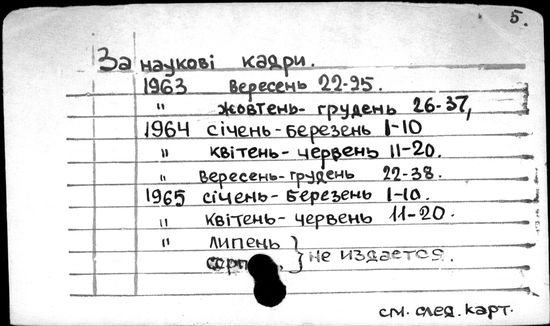 5.
За наукові кадри.
1963 вересень 22-25.
" жовтень- грудень 26-37,
1964 січень-березень 1-10
" квітень- червень 11-20.
" вересень-грудень 22-38.
1965 січень- березень 1-10.
" квітень- червень 11-20.
" липень
} не издается.
см. след. карт.